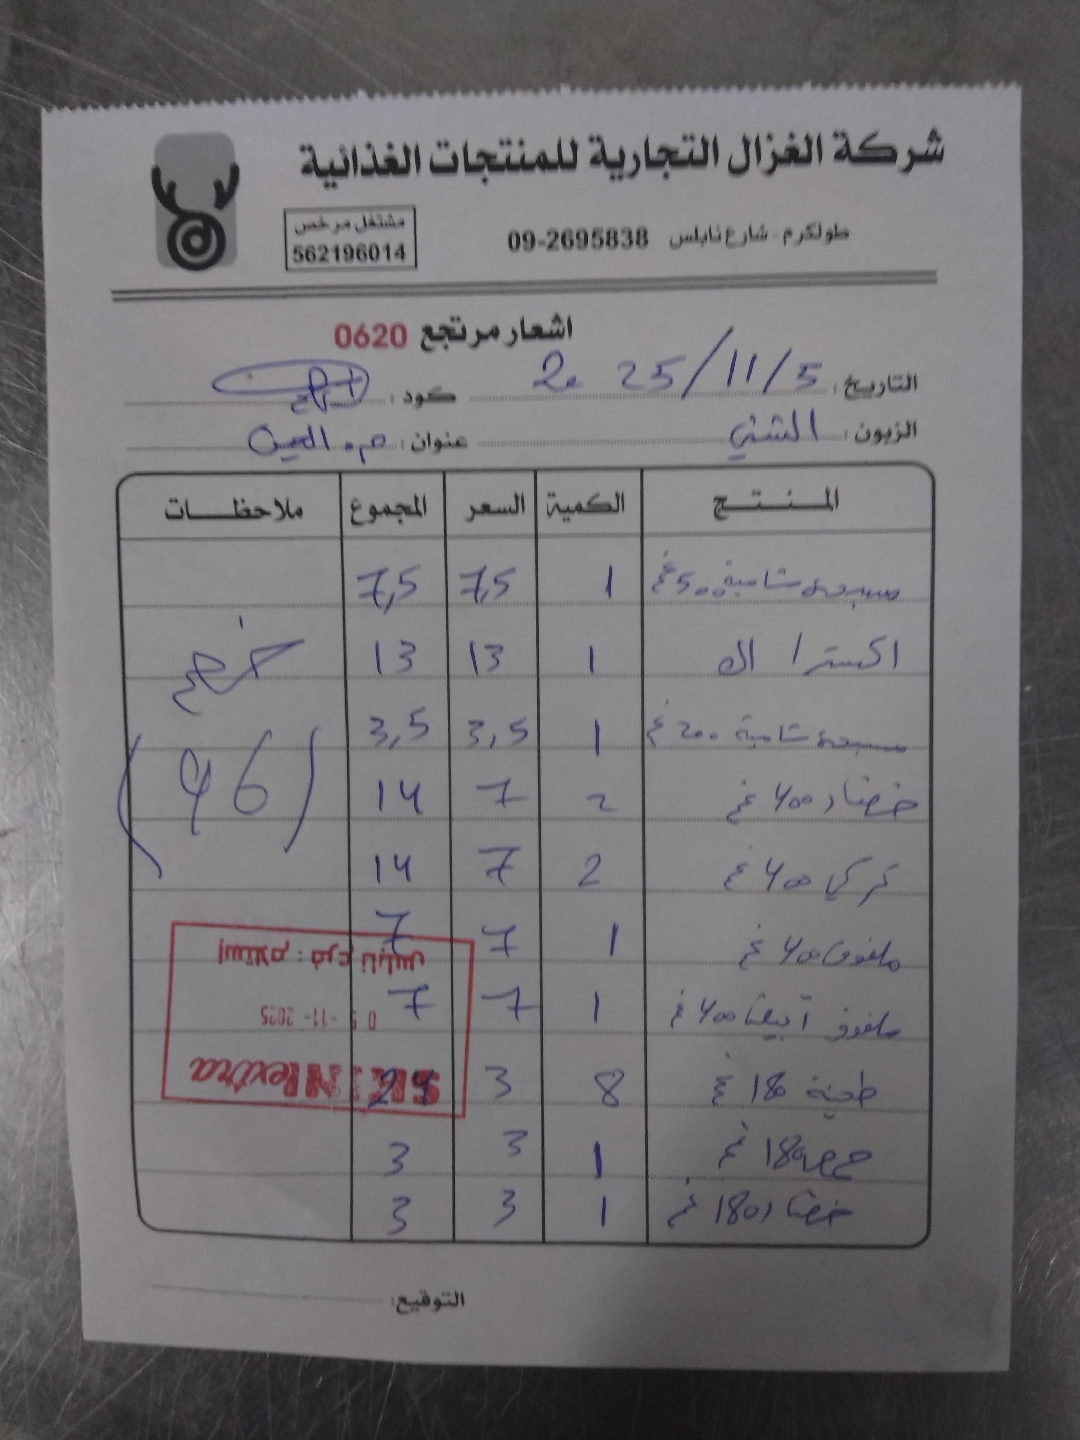 شركة الغزال التجارية للمنتجات الغذائية
طولكرم - شارع نابلس 09-2695838
مشتغل مرخص
562196014
اشعار مرتجع 0620
التاريخ: 2025/11/5 كود:
الزبون: الشني عنوان: م. العين
المنتج الكمية السعر المجموع ملاحظات
مسبحة شامية 500 غ 1 7,5 7,5
اكسترا ال 1 13 13 خصم
مسبحة شامية 200 غ 1 3,5 3,5
خضار 400 غ 2 7 14 (96)
تركي 400 غ 2 7 14
ملفوف 400 غ 1 7 7
ملفوف أبيض 400 غ 1 7 7
طحينة 180 غ 8 3 24
حمص 180 غ 1 3 3
خضار 180 غ 1 3 3
استلام: فرع نابلس
05-11-2025
extra
التوقيع: